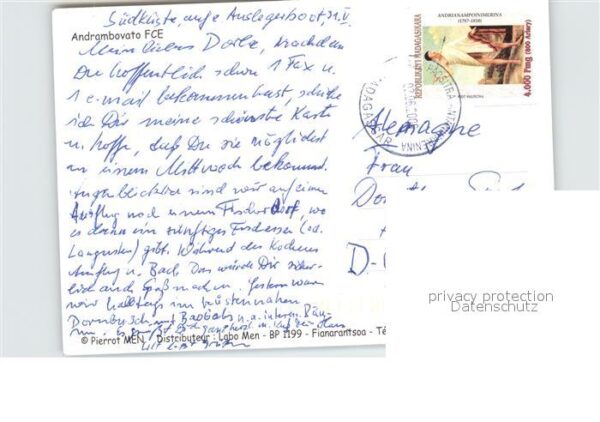 Südküste, auf'm Auslegerboot, 31.V.
Andrambovato FCE
Mein liebes Dorle, nachdem
Du hoffentlich schon 1 Fax u.
1 e-mail bekommen hast, schicke
ich Dir meine schönste Karte
u. hoffe, daß Du sie möglichst
an einem Mittwoch bekommst.
Augenblicklich sind wir auf einem
Ausflug nach einem Fischerdorf, wo
es dann ein zünftiges Fischessen (od.
Langusten) gibt. Während des Kochens
Ausflug u. Bad. Das würde Dir sicher-
lich auch Spaß machen. Gestern waren
wir halbtags im küstennahen
Dornbusch mit Baobabs u. a. interes. Bäu-
© Pierrot MEN Distributeur : Labo Men - BP 1199 - Fianarantsoa - Té
REPOBLIKAN'I MADAGASIKARA
ANDRIANAMPOINIMERINA
(1787-1810)
4.000 Fmg (800 Ariary)
Alemagne
Frau
D-
privacy protection
Datenschutz